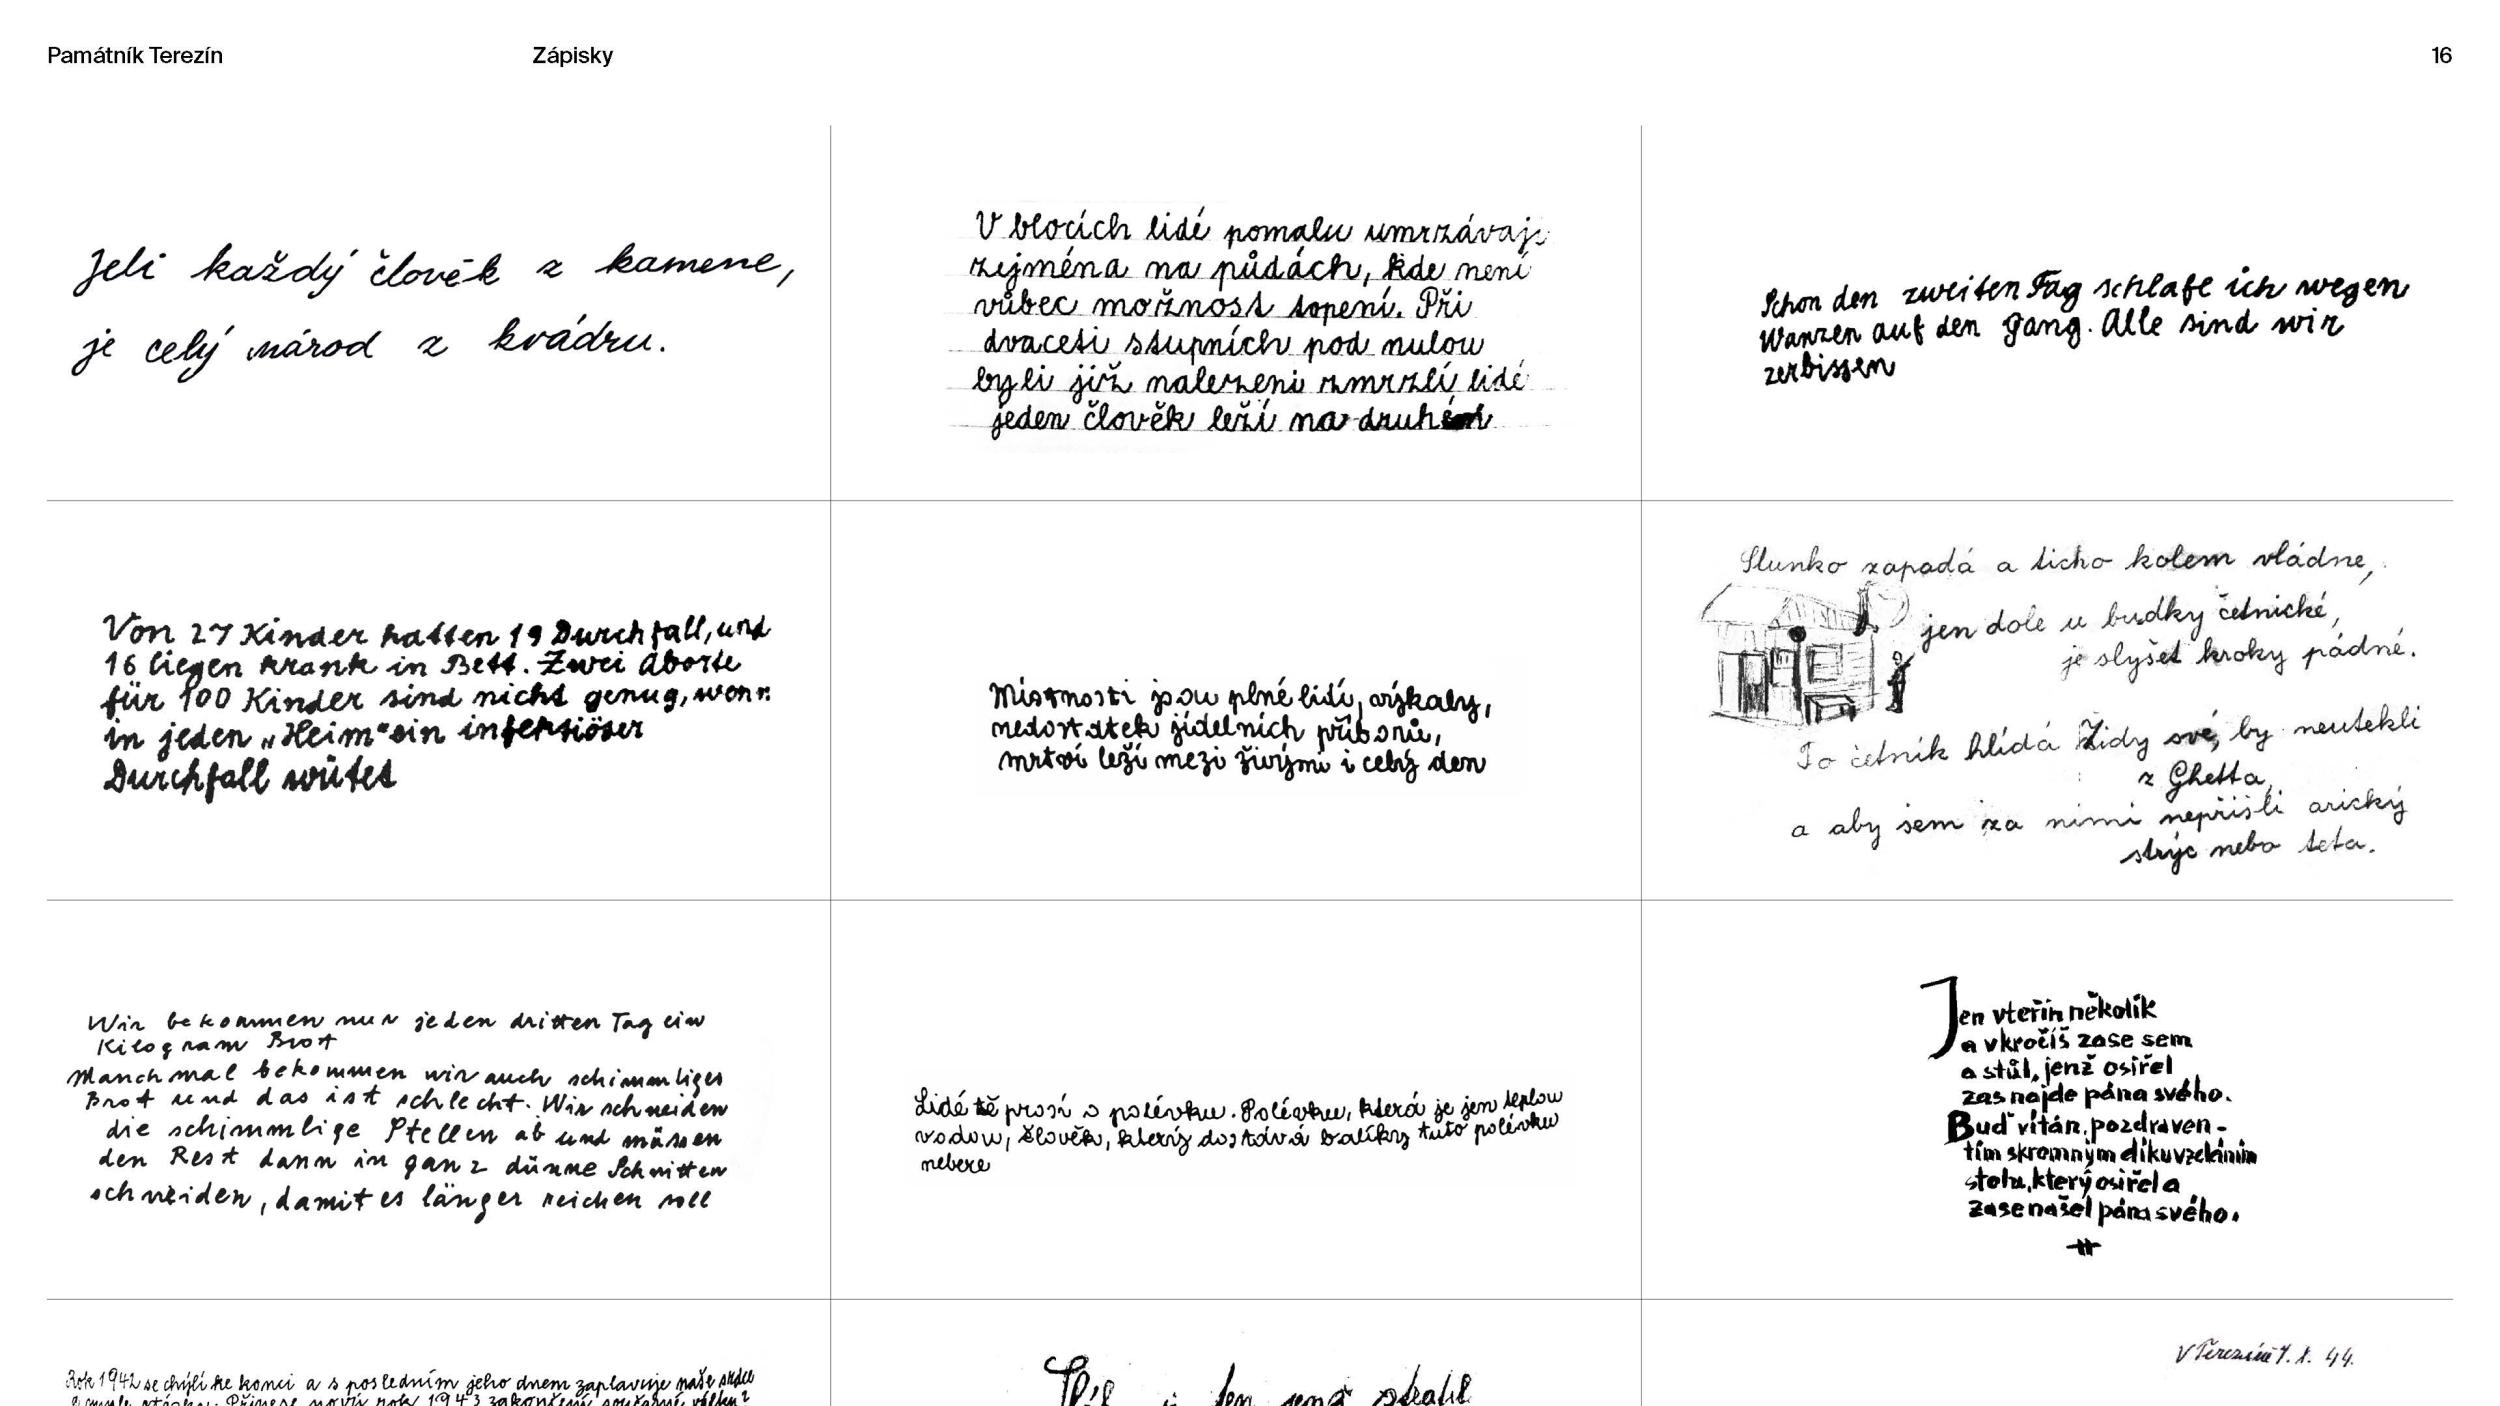 Památník Terezín
Zápisky
16
Jeli každý člověk z kamene,
je celý národ z kvádru.
V blocích lidé pomalu umrzávají
zejména na půdách, kde není
vůbec možnost topení. Při
dvaceti stupních pod nulou
byli již nalezeni zmrzlí lidé
jeden člověk leží na druhém
Schon den zweiten Tag schlafe ich wegen
Wanzen auf den Gang. Alle sind wir
zerbissen
Von 27 Kinder hatten 19 Durchfall, und
16 liegen krank in Bett. Zwei Aborte
für 100 Kinder sind nicht genug, wenn
in jeden „Heim" ein infektiöser
Durchfall wütet
Místnosti jsou plné lidí, výskaly,
nedostatek jídelních příborů,
mrtví leží mezi živými i celý den
Slunko zapadá a ticho kolem vládne,
jen dole u budky četnické,
je slyšet kroky pádné.
To četník hlídá Židy své, by neutekli
z Ghetta,
a aby sem za nimi nepřišli arický
strýc nebo teta.
Wir bekommen nur jeden dritten Tag ein
Kilogram Brot
Manchmal bekommen wir auch schimmliges
Brot und das ist schlecht. Wir schneiden
die schimmlige Stellen ab und müssen
den Rest dann in ganz dünne Schnitten
schneiden, damit es länger reichen soll
Lidé tě prosí o polévku. Polévku, která je jen teplou
vodou, člověk, který dostává balíky tuto polévku
nebere
Jen vteřin několik
a vkročíš zase sem
a stůl, jenž osiřel
zas najde pána svého.
Buď vítán, pozdraven -
tím skromným díkuvzdáním
stolu, který osiřel a
zase našel pána svého.
Rok 1942 se chýlí ke konci a s posledním jeho dnem zaplavuje naše srdce
Přinese nový rok 1943 zakončení současné války?
V Terezíně 7. X. 44.